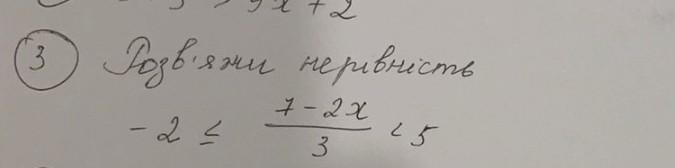 > 9x + 2
3 Розв'яжи нерівність
-2 ≤ (7 - 2x)/3 < 5